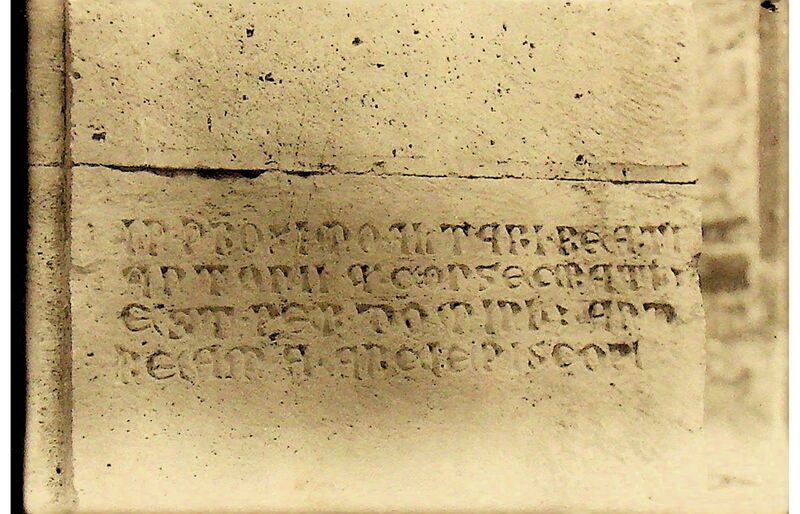 IN PROXIMO ALTARI BEATI
ANTONII A CONSECRATU
EST PER DOMINU AND
REAM A ARCIEPISCOPU